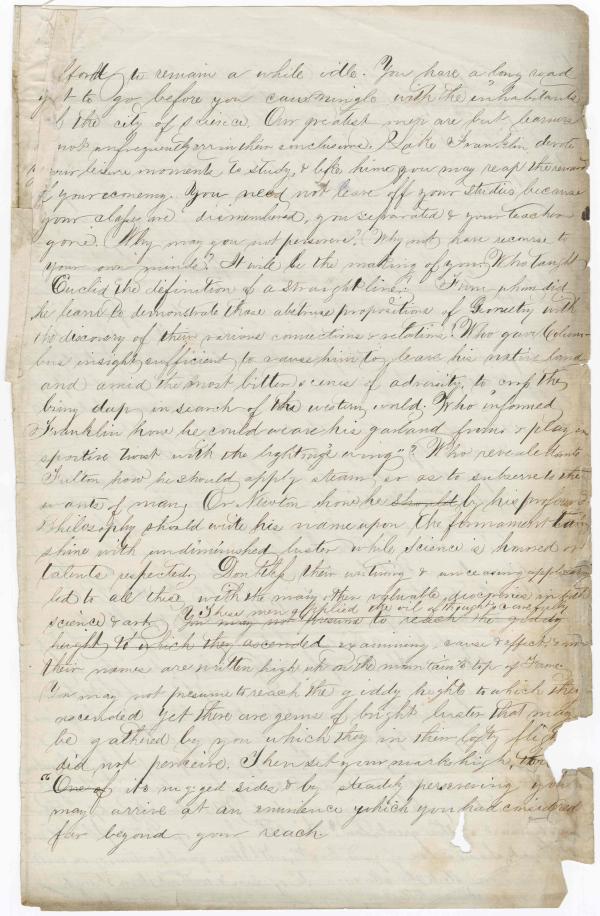 to remain a while idle. You have a long road
to go before you can mingle with the inhabitants
the city of science. Our greatest men are but learners
not unfrequently err in their conclusions. Like Franklin devote
your leisure moments to study, & like him you may reap the reward
of your economy. You need not leave off your studies, because
your class are dismembered, you separated & your teacher
gone. Why may you not persevere? Why not have recourse to
your own minds? It will be the making of you. Who taught
Euclid the definition of a straight line? From whom did
he learn to demonstrate those abstruse propositions of Geometry with
the discovery of their various connections & relations? Who gave Colum-
bus insight sufficient to cause him to leave his native land
and amid the most bitter scenes of adversity, to cross the
briny deep in search of the western world. Who informed
Franklin how he could weave his garland & play in
sportive twist with the lightning's wing"? Who revealed unto
Fulton how he should apply steam so as to subserve to the
wants of man, Or Newton how he should by his profound
Philosophy should write his name upon the firmament to
shine with undiminished luster while science is honored or
talents respected, Doubtless their untiring & unceasing application
led to all this with the many other valuable discoveries in both
science & arts. These men applied the oil of thought, carefully
You may not presume to reach the giddy
height to which they ascended examining cause & effect, and
their names are written high up on the mountain top of Fame.
You may not presume to reach the giddy height to which they
ascended yet there are gems of bright luster that may
be gathered by you which they in their lofty flight
did not perceive. Then set your mark high,
One of its rugged sides & by steadily persevering you
may arrive at an eminence which you had considered
far beyond your reach